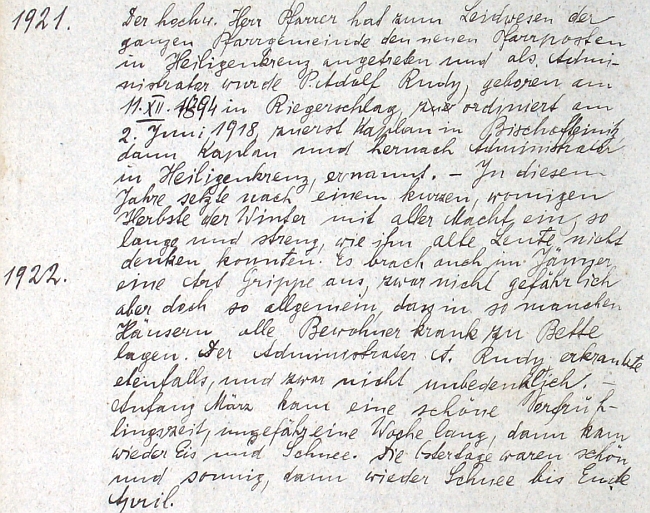 1921. Der hochw. Herr Pfarrer hat zum Leidwesen der
ganzen Pfarrgemeinde den neuen Pfarrposten
in Heiligenkreuz angetreten und als Admi-
nistrator wurde P. Adolf Rudy, geboren am
11. XII. 1894 in Riegerschlag, ordiniert am
2. Juni 1918, zuerst Kaplan in Bischofteinitz
dann Kaplan und hernach Administrator
in Heiligenkreuz, ernannt. – In diesem
Jahre setzte nach einem kurzen, wonnigen
Herbste der Winter mit aller Macht ein, so
lange und streng, wie ihn alte Leute nicht
denken konnten. Es brach auch im Jänner
1922. eine Art Grippe aus, zwar nicht gefährlich
aber doch so allgemein, dass in so manchen
Häusern alle Bewohner krank zu Bette
lagen. Der Administrator A. Rudy erkrankte
ebenfalls, und zwar nicht unbedenklich. –
Anfang März kam eine schöne Vorfrüh-
lingszeit, ungefähr eine Woche lang, dann kam
wieder Eis und Schnee. Die Ostertage waren schön
und sonnig, dann wieder Schnee bis Ende
April.